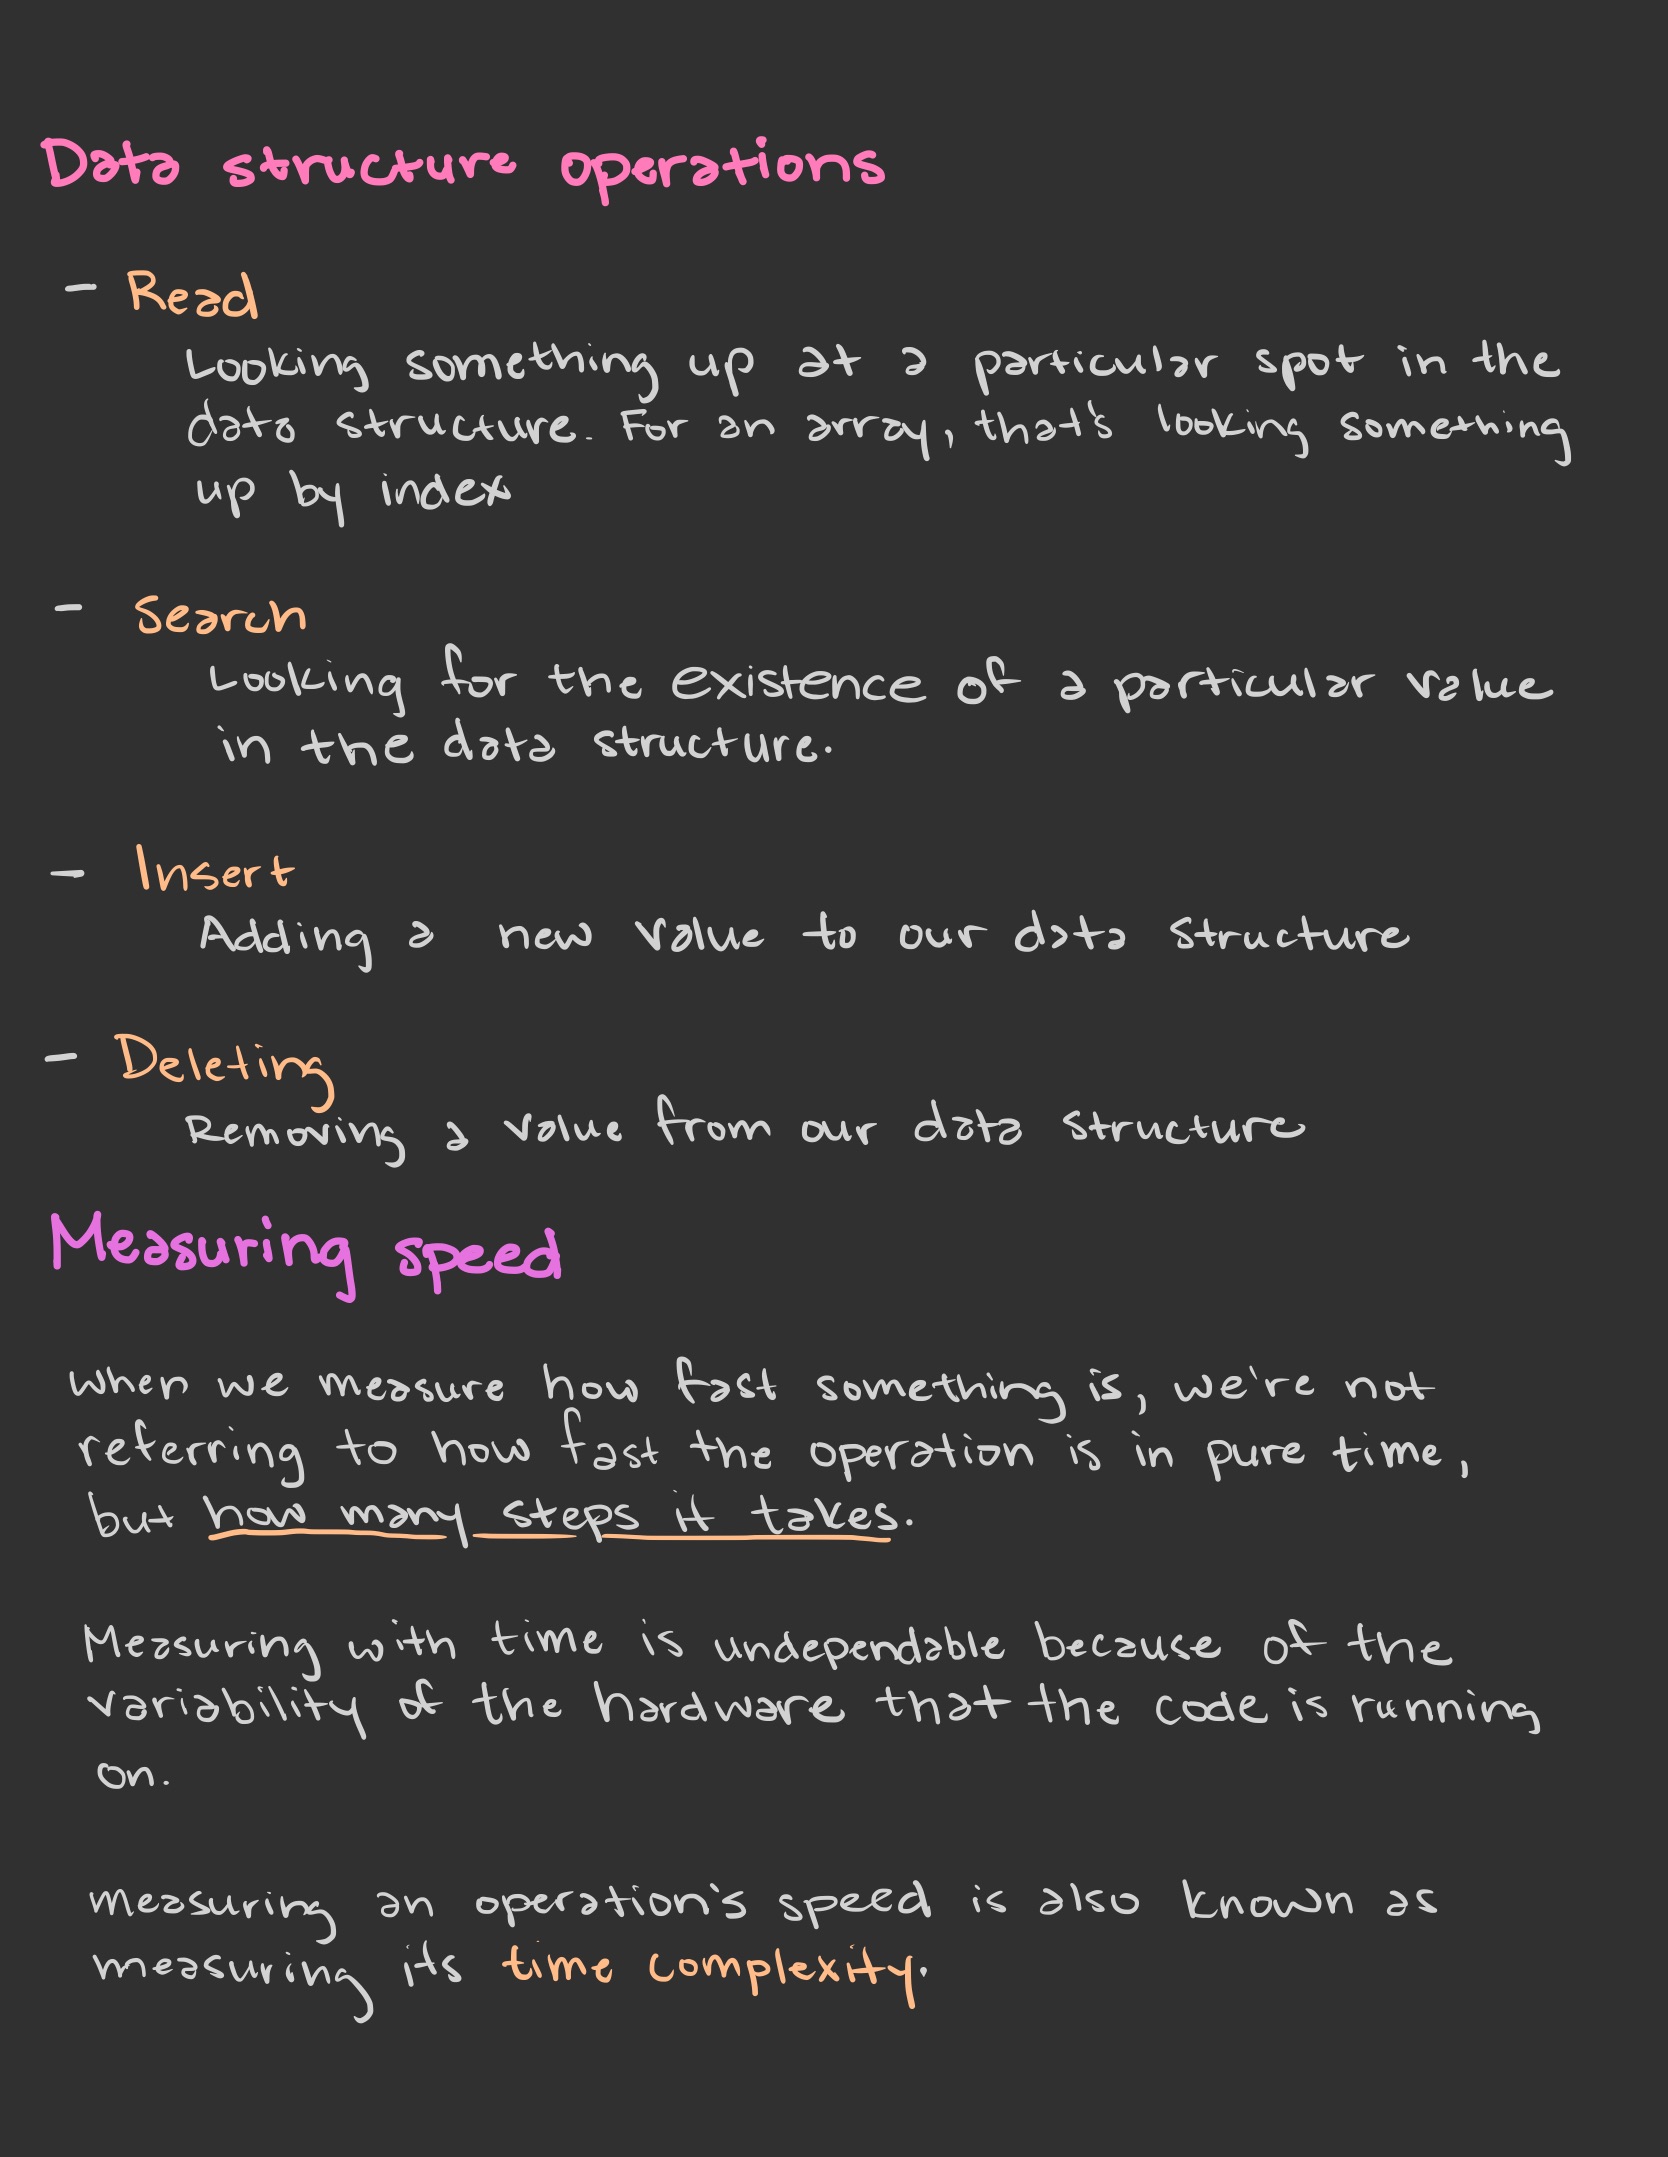 Data structure operations
- Read
Looking something up at a particular spot in the
data structure. For an array, that's looking something
up by index
- Search
Looking for the existence of a particular value
in the data structure.
- Insert
Adding a new value to our data structure
- Deleting
Removing a value from our data structure
Measuring speed
when we measure how fast something is, we're not
referring to how fast the operation is in pure time,
but how many steps it takes.
Measuring with time is undependable because of the
variability of the hardware that the code is running
on.
measuring an operation's speed is also known as
measuring its time complexity.